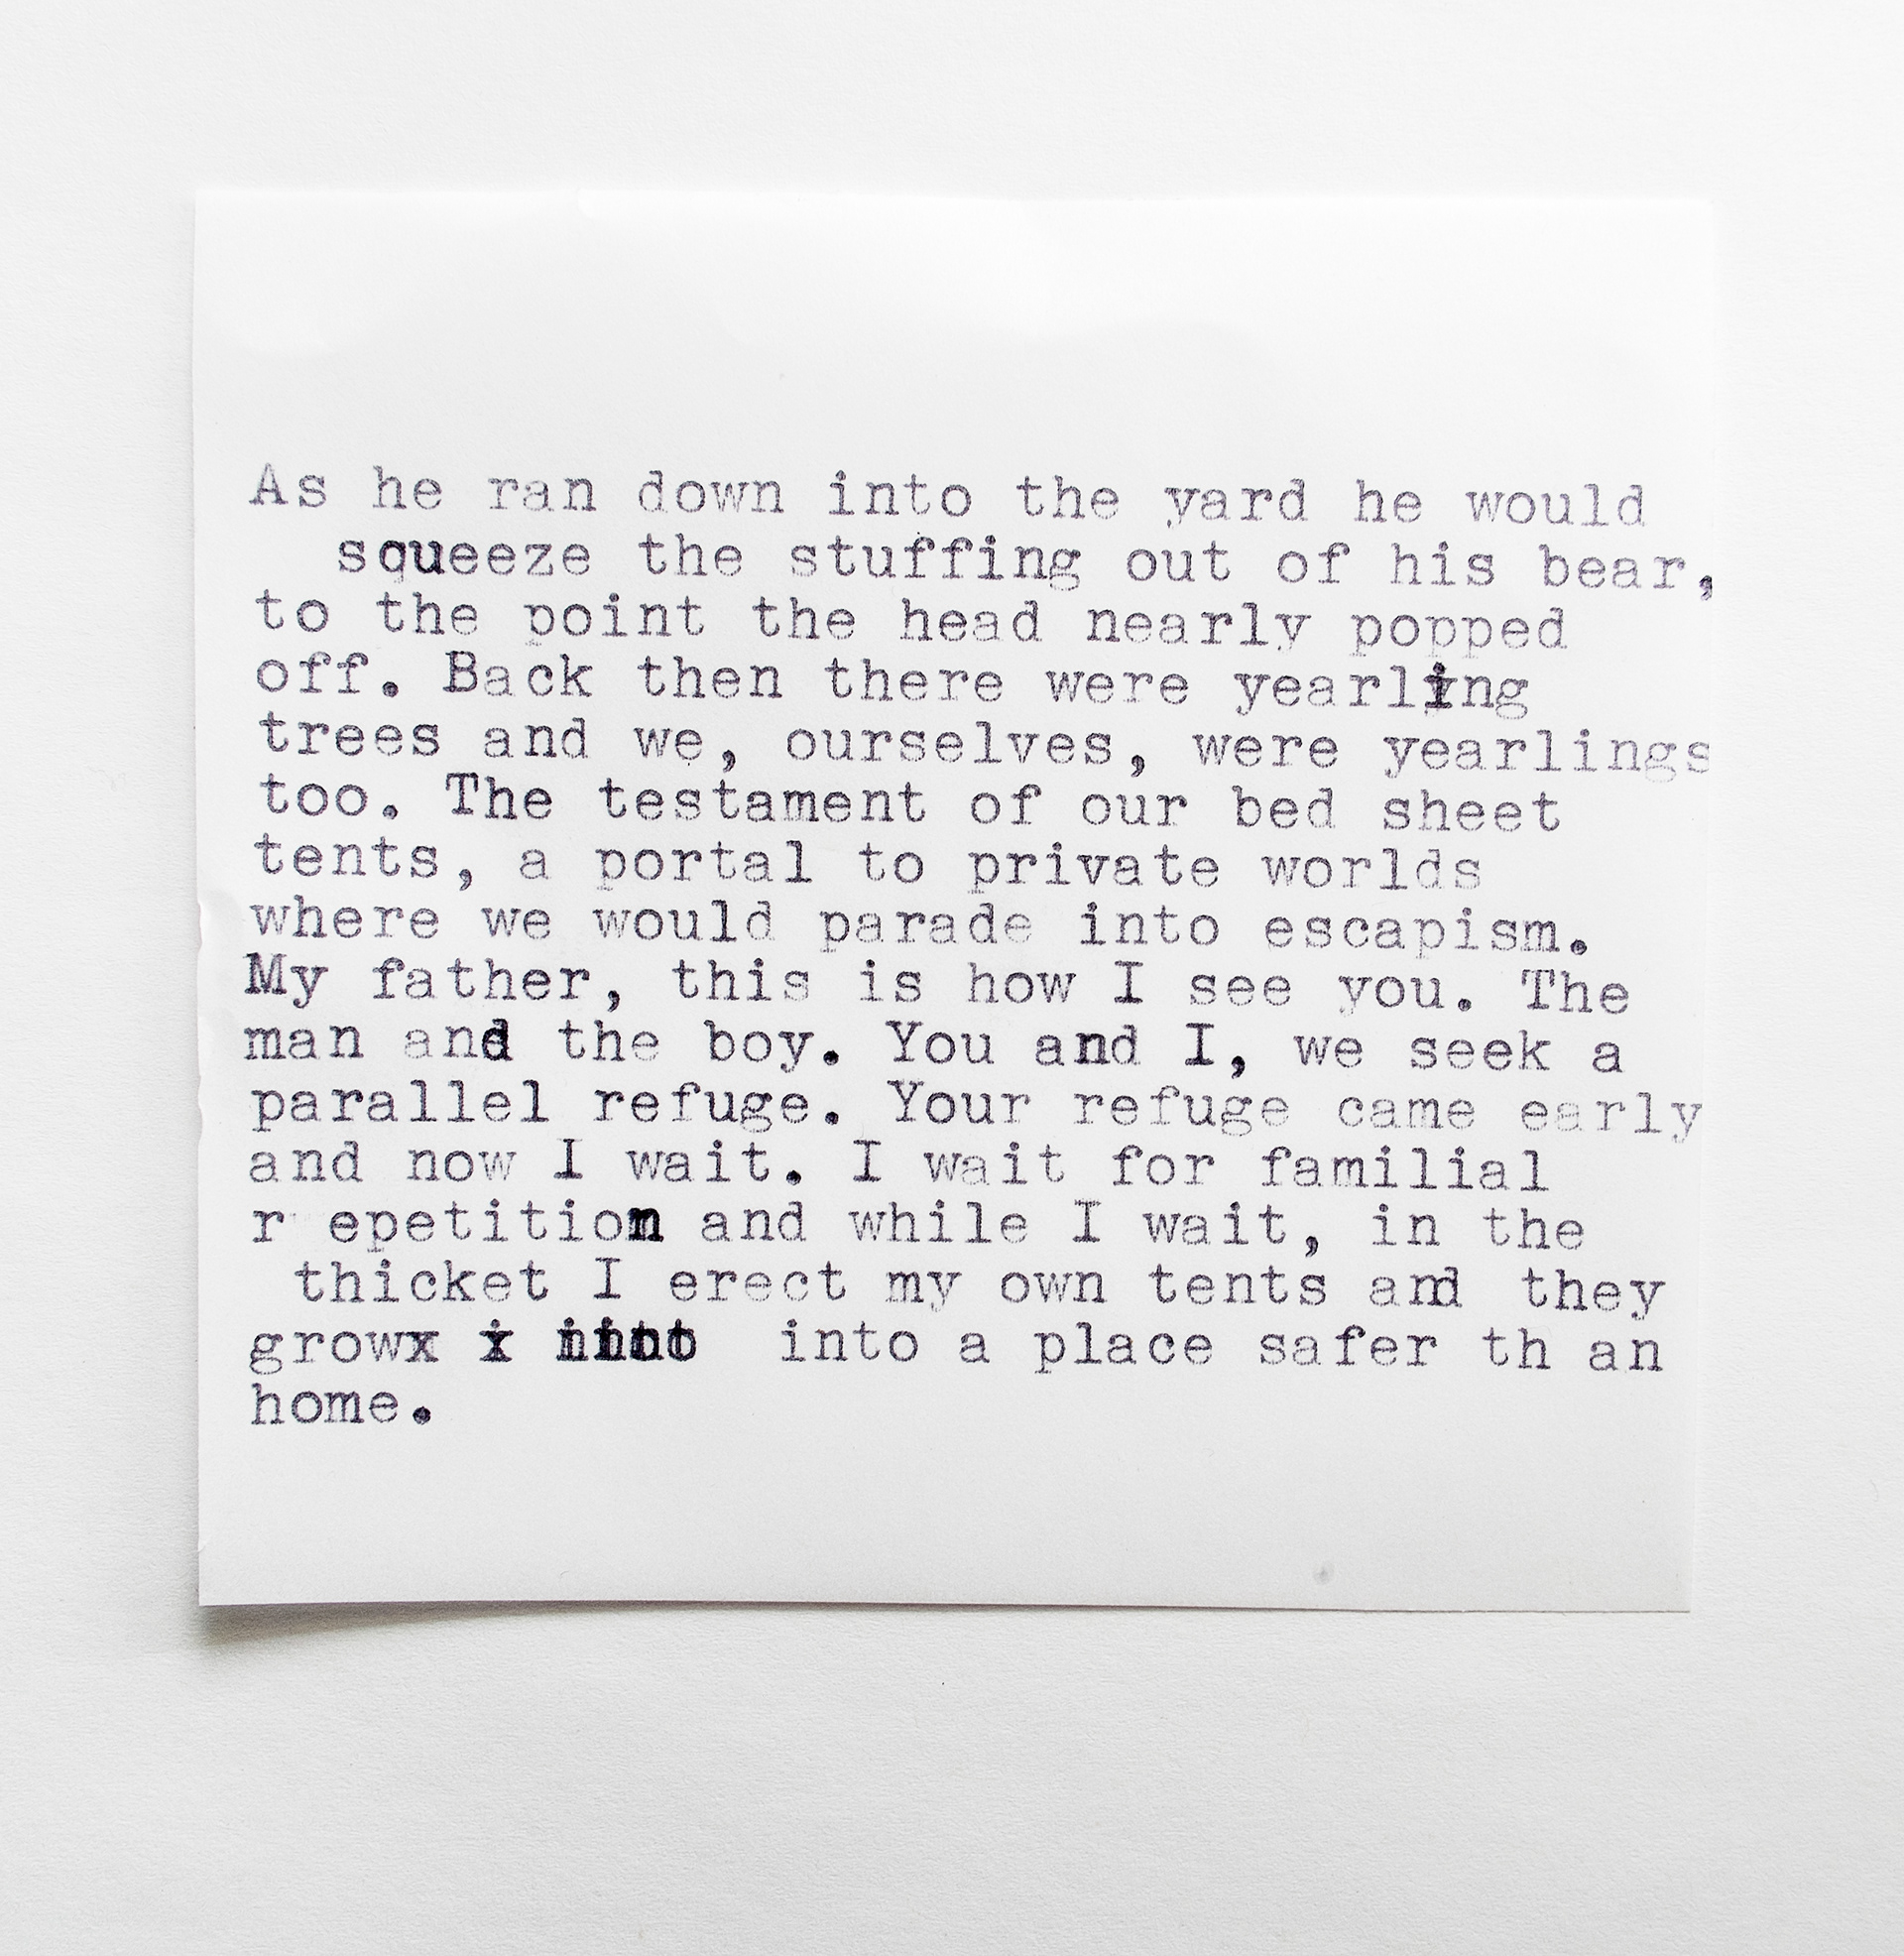 As he ran down into the yard he would
squeeze the stuffing out of his bear,
to the point the head nearly popped
off. Back then there were yearling
trees and we, ourselves, were yearlings
too. The testament of our bed sheet
tents, a portal to private worlds
where we would parade into escapism.
My father, this is how I see you. The
man and the boy. You and I, we seek a
parallel refuge. Your refuge came early
and now I wait. I wait for familial
r epetition and while I wait, in the
thicket I erect my own tents and they
growx into a place safer th an
home.